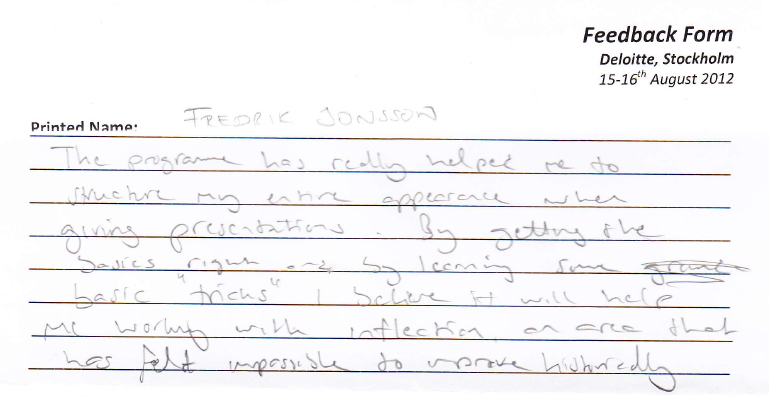 Feedback Form
Deloitte, Stockholm
15-16th August 2012
Printed Name: FREDRIK JONSSON
The programme has really helped me to
structure my entire appearance when
giving presentations. By getting the
basics right and by learning some
basic "tricks" I believe it will help
me working with inflection, an area that
has felt impossible to improve historically